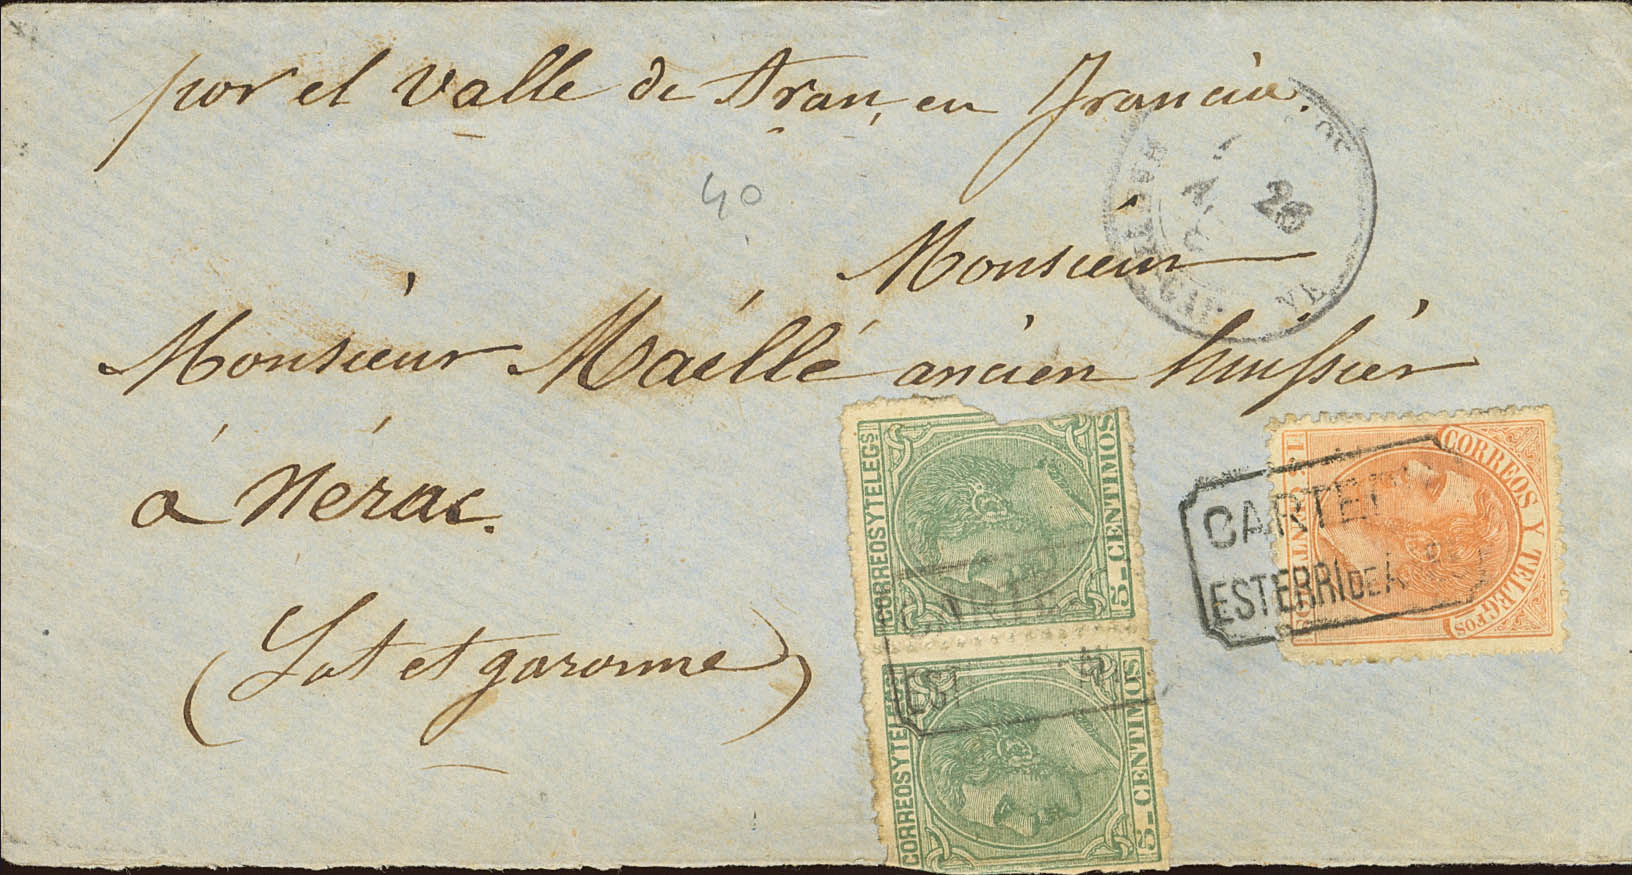 por el Valle de Aran, en Francia.
40
26
Monsieur
Monsieur Maillé ancien huissier
à Nérac.
(Lot et garonne)
CORREOS Y TELEGS
5-CENTIMOS
CORREOS Y TELEGS
5-CENTIMOS
CORREOS Y TELEGFOS
ESTERRI DE